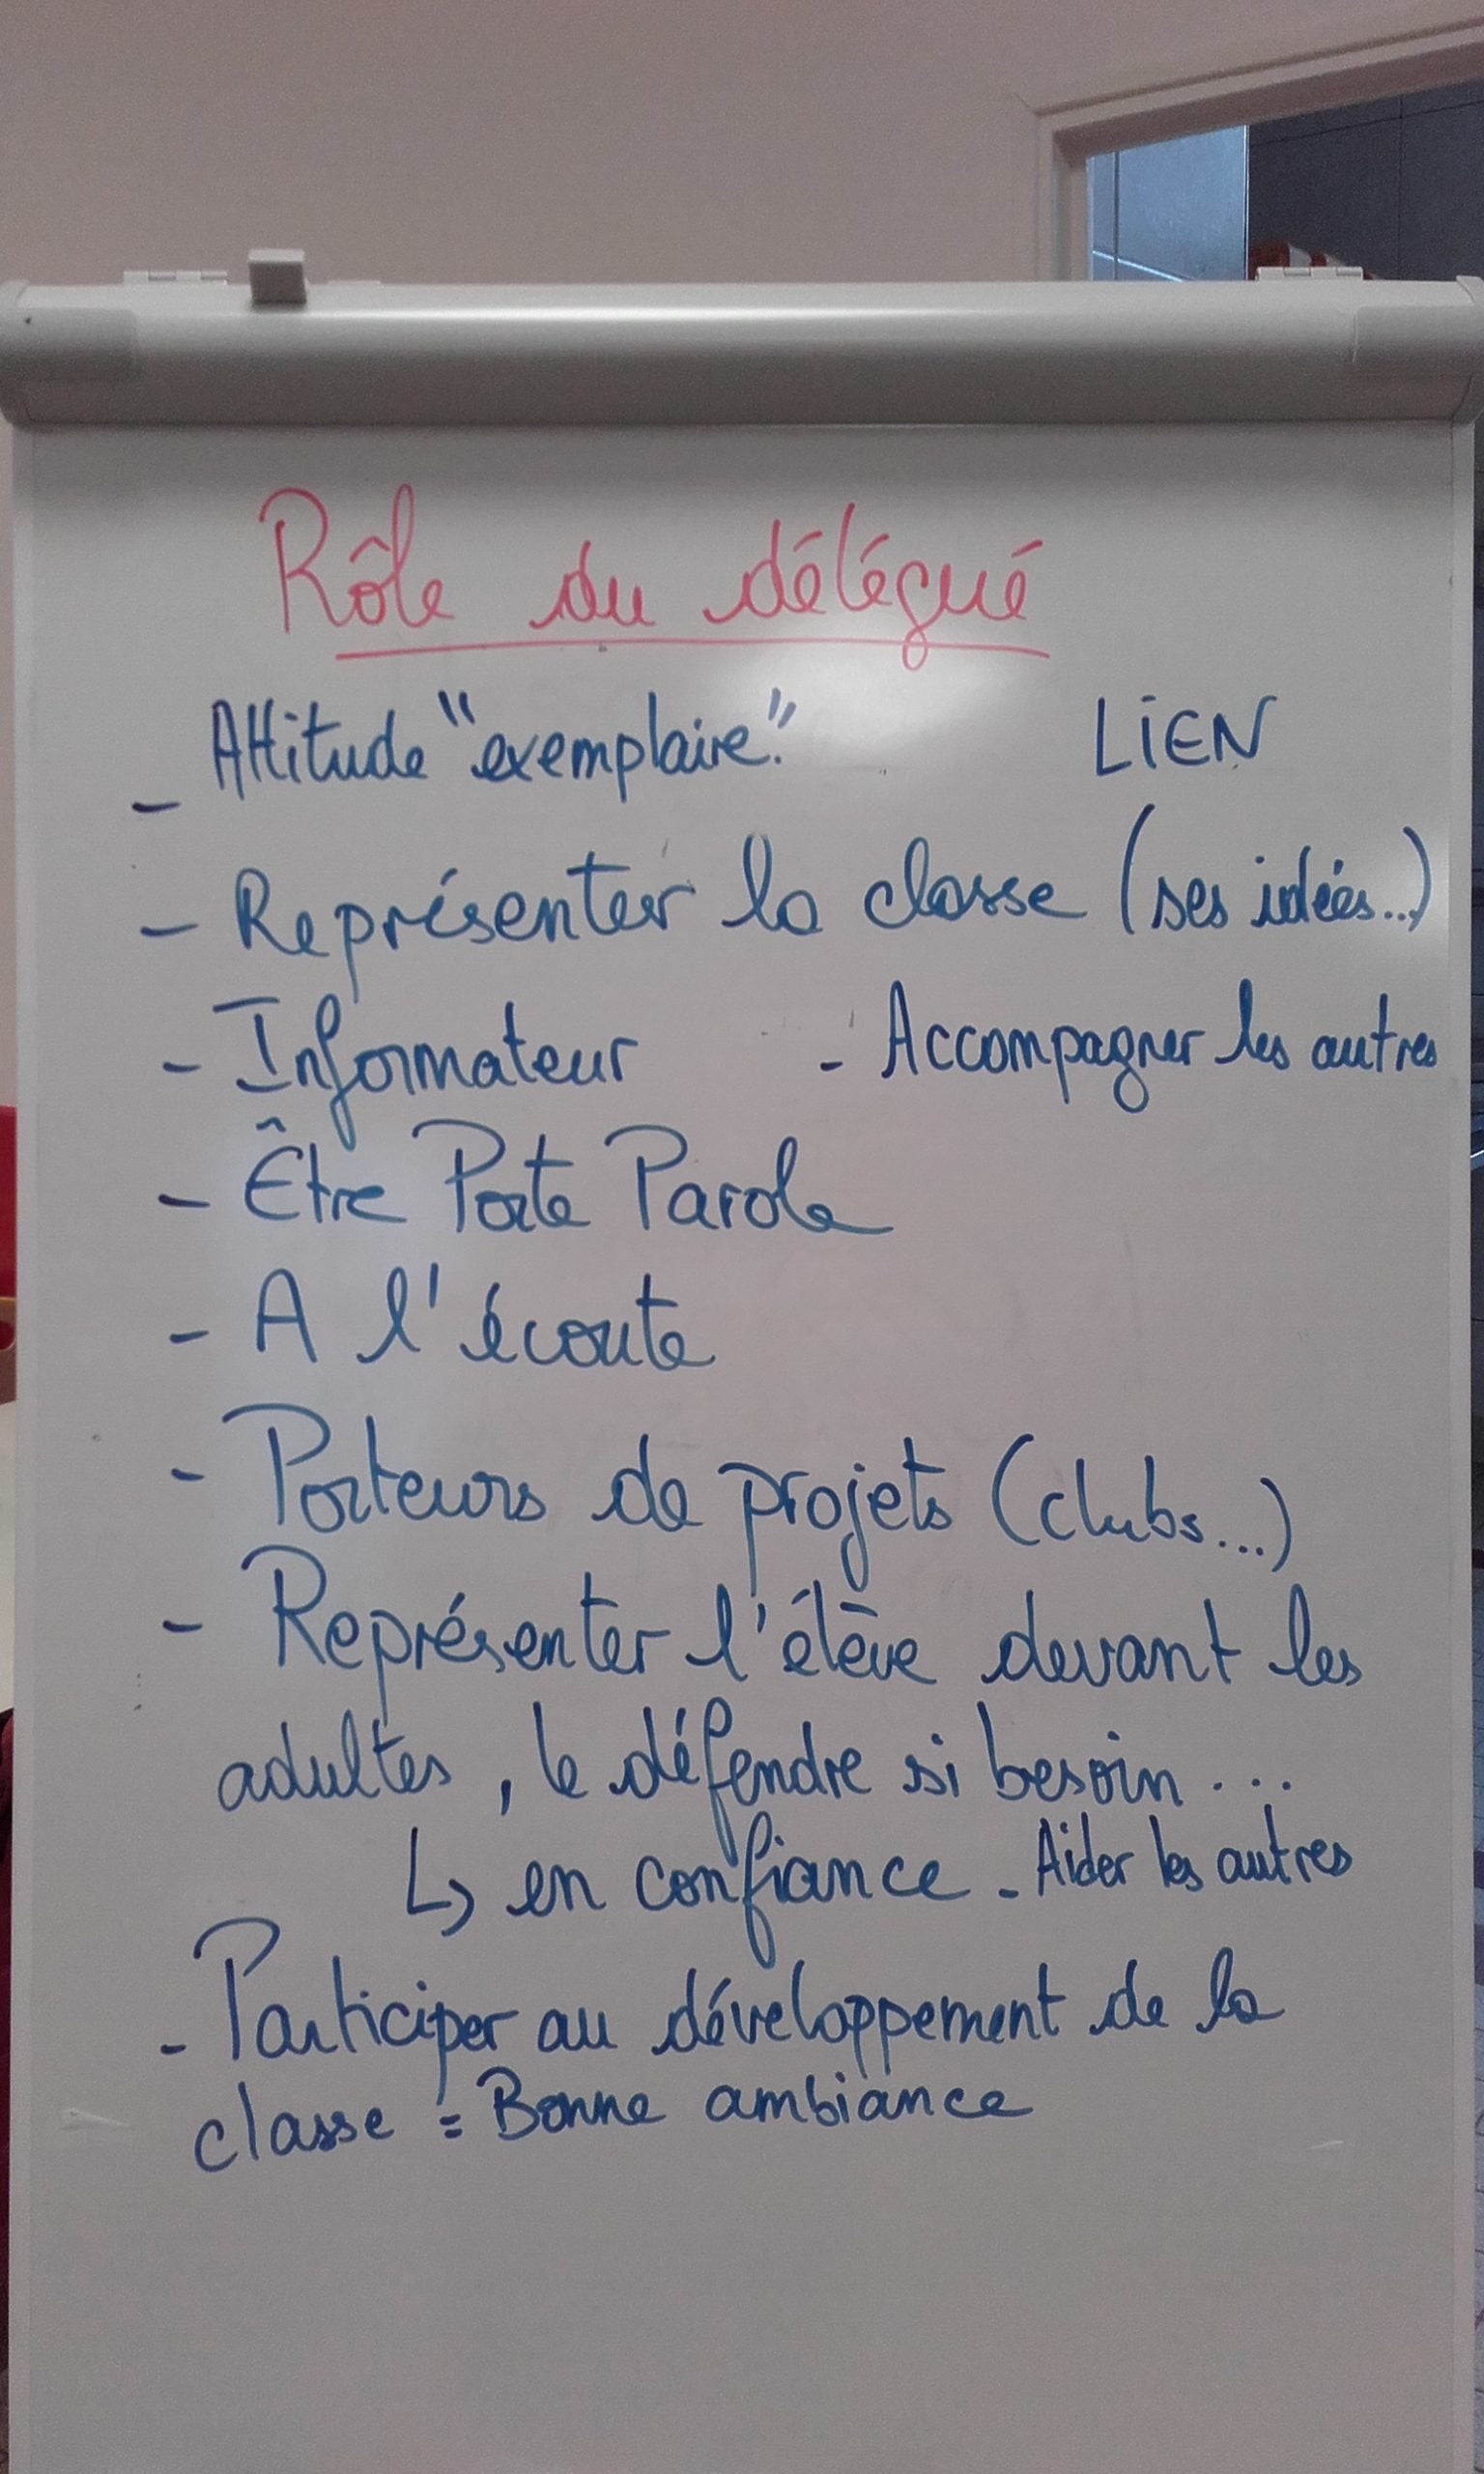 Rôle du délégué
- Attitude "exemplaire". LiEN
- Représenter la classe (ses idées...)
- Informateur - Accompagner les autres
- Être Porte Parole
- A l'écoute
- Porteurs de projets (clubs...)
- Représenter l'élève devant les
adultes, le défendre si besoin ...
↳ en confiance - Aider les autres
- Participer au développement de la
classe = Bonne ambiance